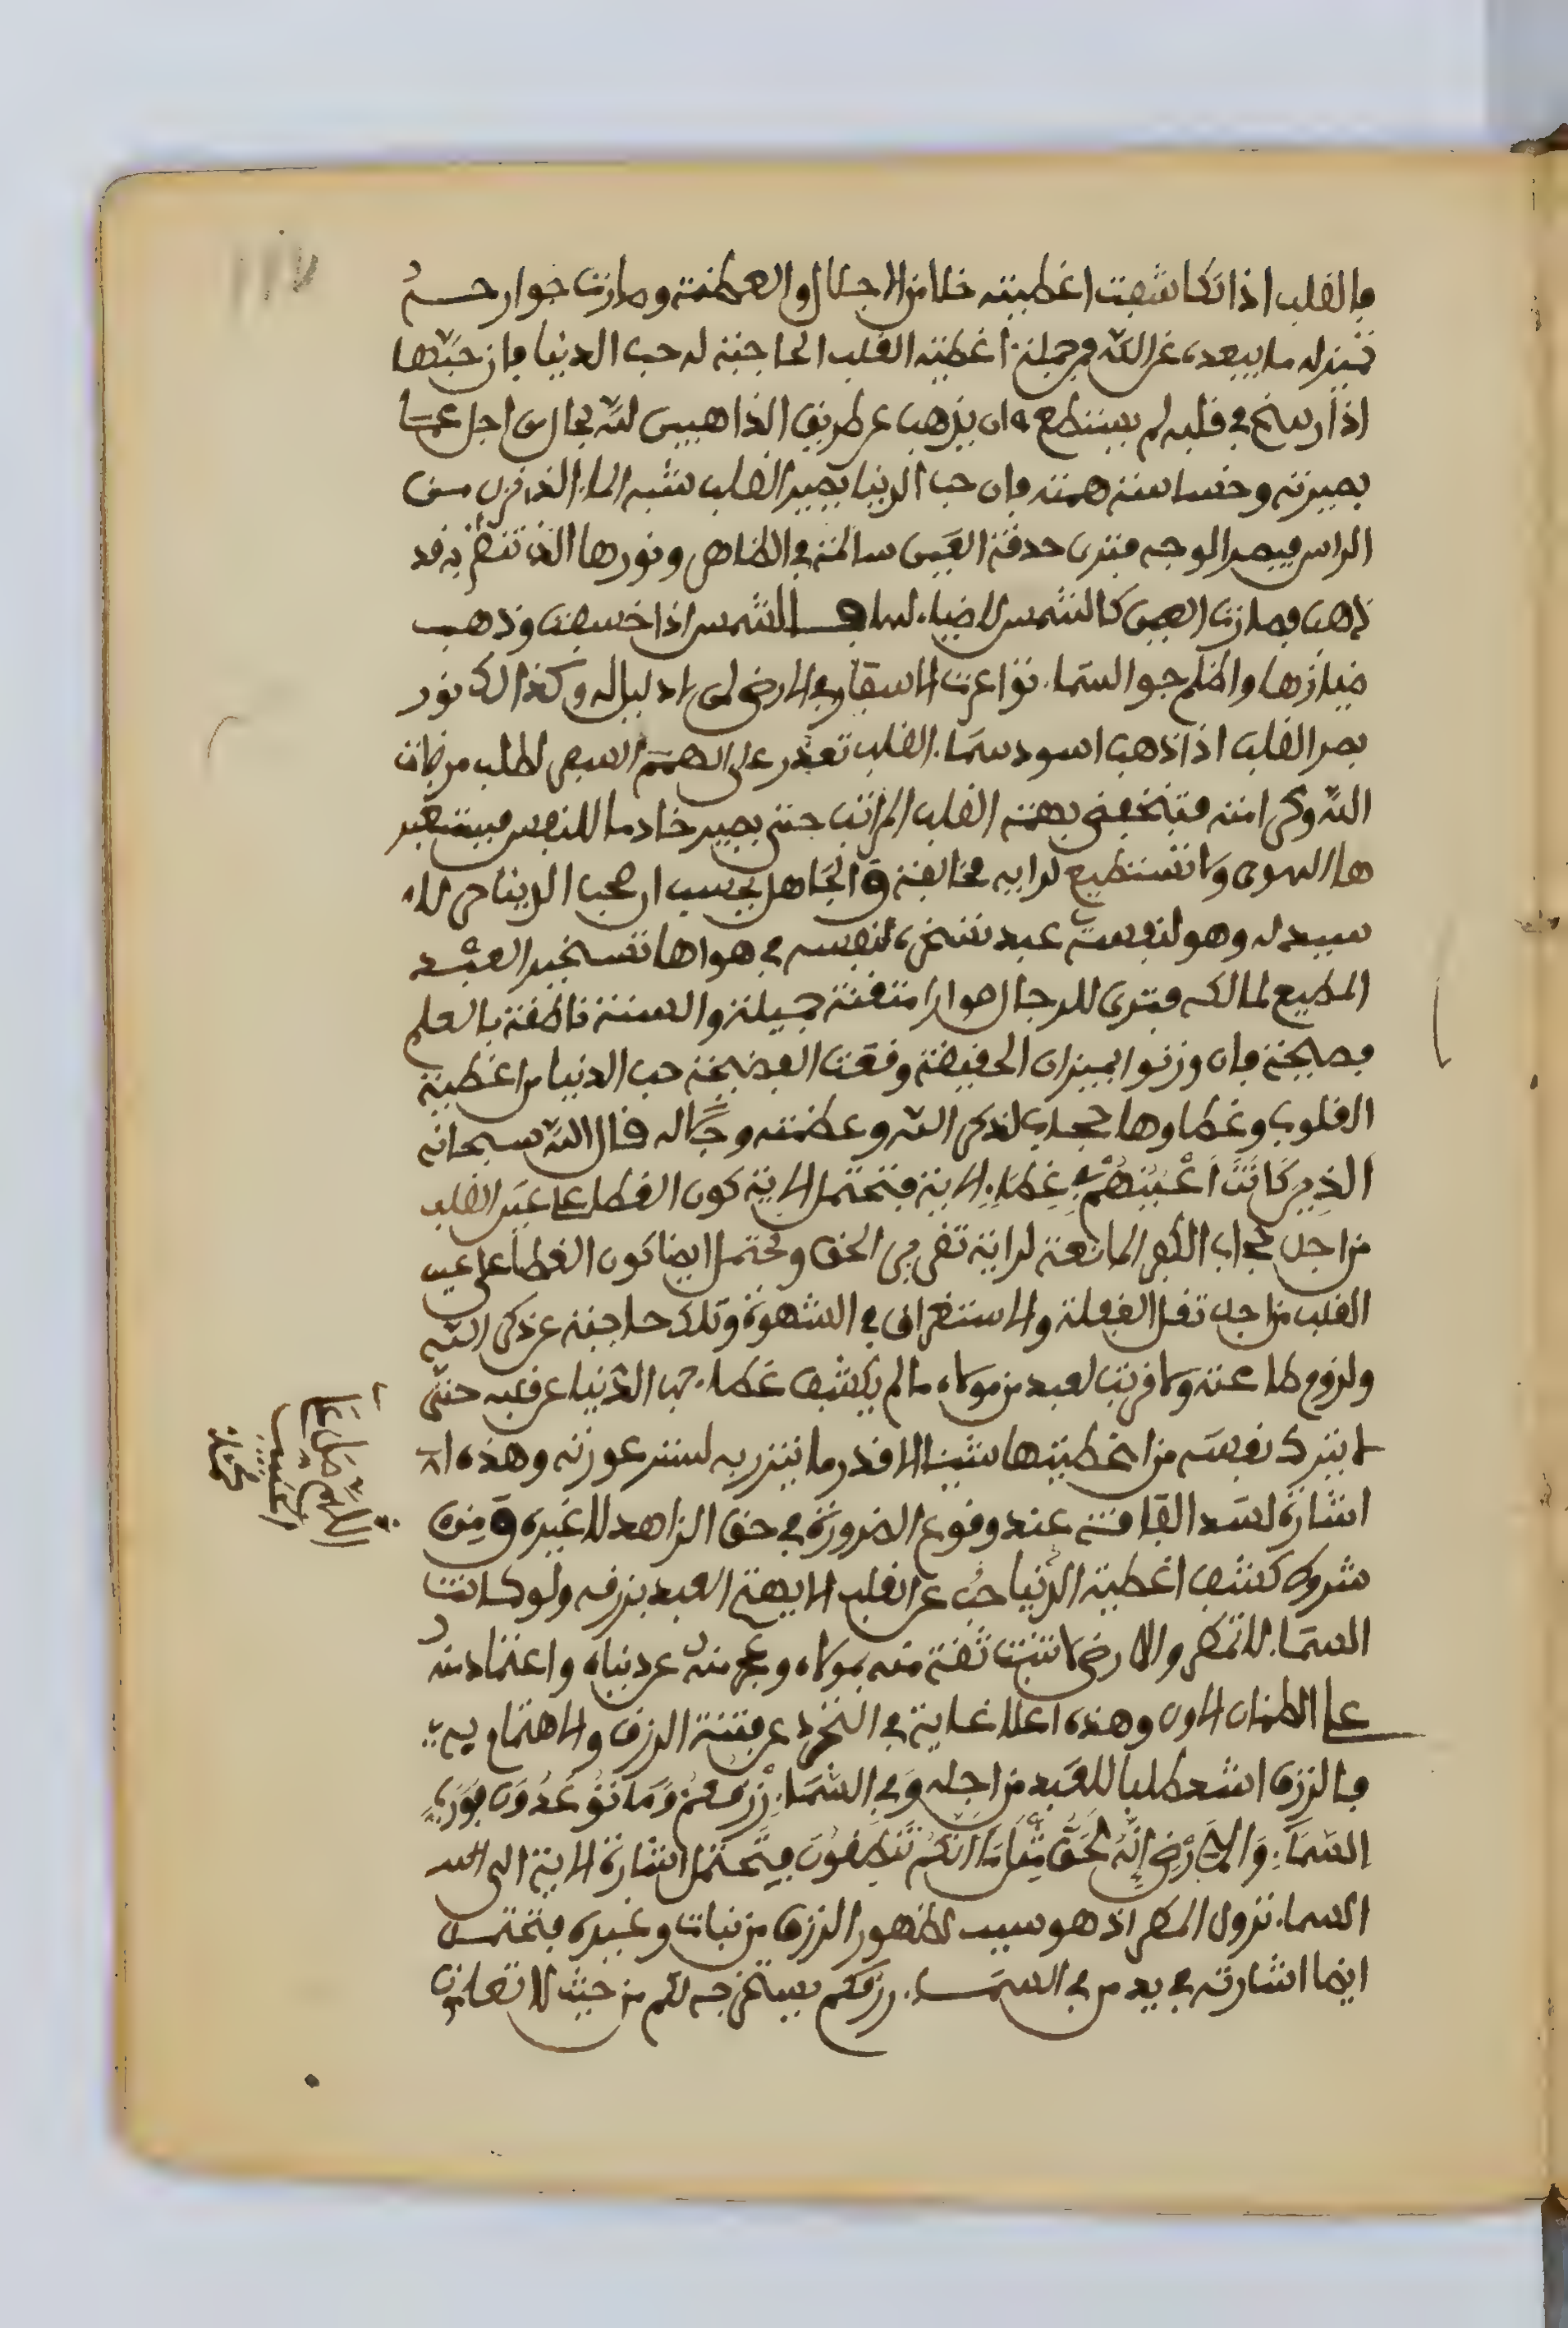 فالقلب اذا تكاشفت اغطيته خلا من الاجلال والعظمة وصارت جوارحه
تميز له ما يبعده عن الله فمن جملة اغطية القلب الحاجبة له حب الدنيا فان حبها
اذا رسخ في قلبه لم يستطع ان يذهب عن طريق الذاهبين لله تعالى من اجل عما
بصيرته وخساسة همته فان حب الدنيا يصير القلب شبه الماء الذي نزل من
الراس فيبصر الوجه فترى حدقة العين سالمة في الظاهر ونورها الذي تنظر به قد
ذهب فصارت العين كالشمس لا ضياء لها فالشمس اذا خسفت وذهب
ضياؤها واظلم جو السما توعرت الاسفار في الارض لمن لا دليل له وكذلك نور
بصر القلب اذا ذهب اسود سما القلب تعذر على الهمم السعي لطلب مرضات
الله وكرامته فتنخفض بهمة القلب المراتب حتى يصير خادما للنفس فيستعبد
ها الهوى ولا تستطيع لرايه مخالفة والجاهل يحسب ان محب الدنيا حر لا
سيد له وهو لنفسه عبد تسخره نفسه في هواها تسخير العبد
المطيع لمالكه فترى للرجال احوالا متقنة جميلة والسنة ناطقة بالعلم
فصيحة فان وزنوا بميزان الحقيقة وقعت الفضيحة حب الدنيا من اغطية
القلوب وغطاوها حجاب لذكر الله وعظمته وجلاله قال الله سبحانه
الذين كانت اعينهم في غطاء الاية فتحتمل الاية كون الغطا على عين القلب
من اجل حجاب الكفر المانعة لراية تقى من الحق ويحتمل ايضا كون الغطا على عين
القلب من اجل ثقل الغفلة والاستغراق في الشهوة وتلك حاجبة عن ذكر الله
ولزوم طاعته ولا قربت لعبد من مولاه ما لم يكشف غطاء حب الدنيا عن قلبه حتى
لا يترك نفسه من اغطيتها شيئا الا قدر ما يتزر به لستر عورته وهذه
اشارة لسد الفاقة عند وقوع الضرورة في حق الزاهد لا غيره ومن
شروط كشف اغطية الدنيا حب عن القلب لا يهتم العبد برزقه ولو كانت
السماء لا تمطر والارض لا تنبت ثقة منه بمولاه وعجز منه عن دنياه واعتماد منه
على الضمان الاول وهذه اعلا غاية في التجرد عن فتنة الرزق والاهتمام به
فالرزق اشد طلبا للعبد من اجله وفي السماء رزقكم وما توعدون فورب
السماء والارض انه لحق مثل ما انكم تنطقون فيحتمل اشارة الاية الى
السماء نزول المطر اذ هو سبب لظهور الرزق من نبات وغيره فيحتمل
ايضا اشارته في يد من في السماء رزقكم يستخرجه لكم من حيث لا تعلمون
اللهم صل على